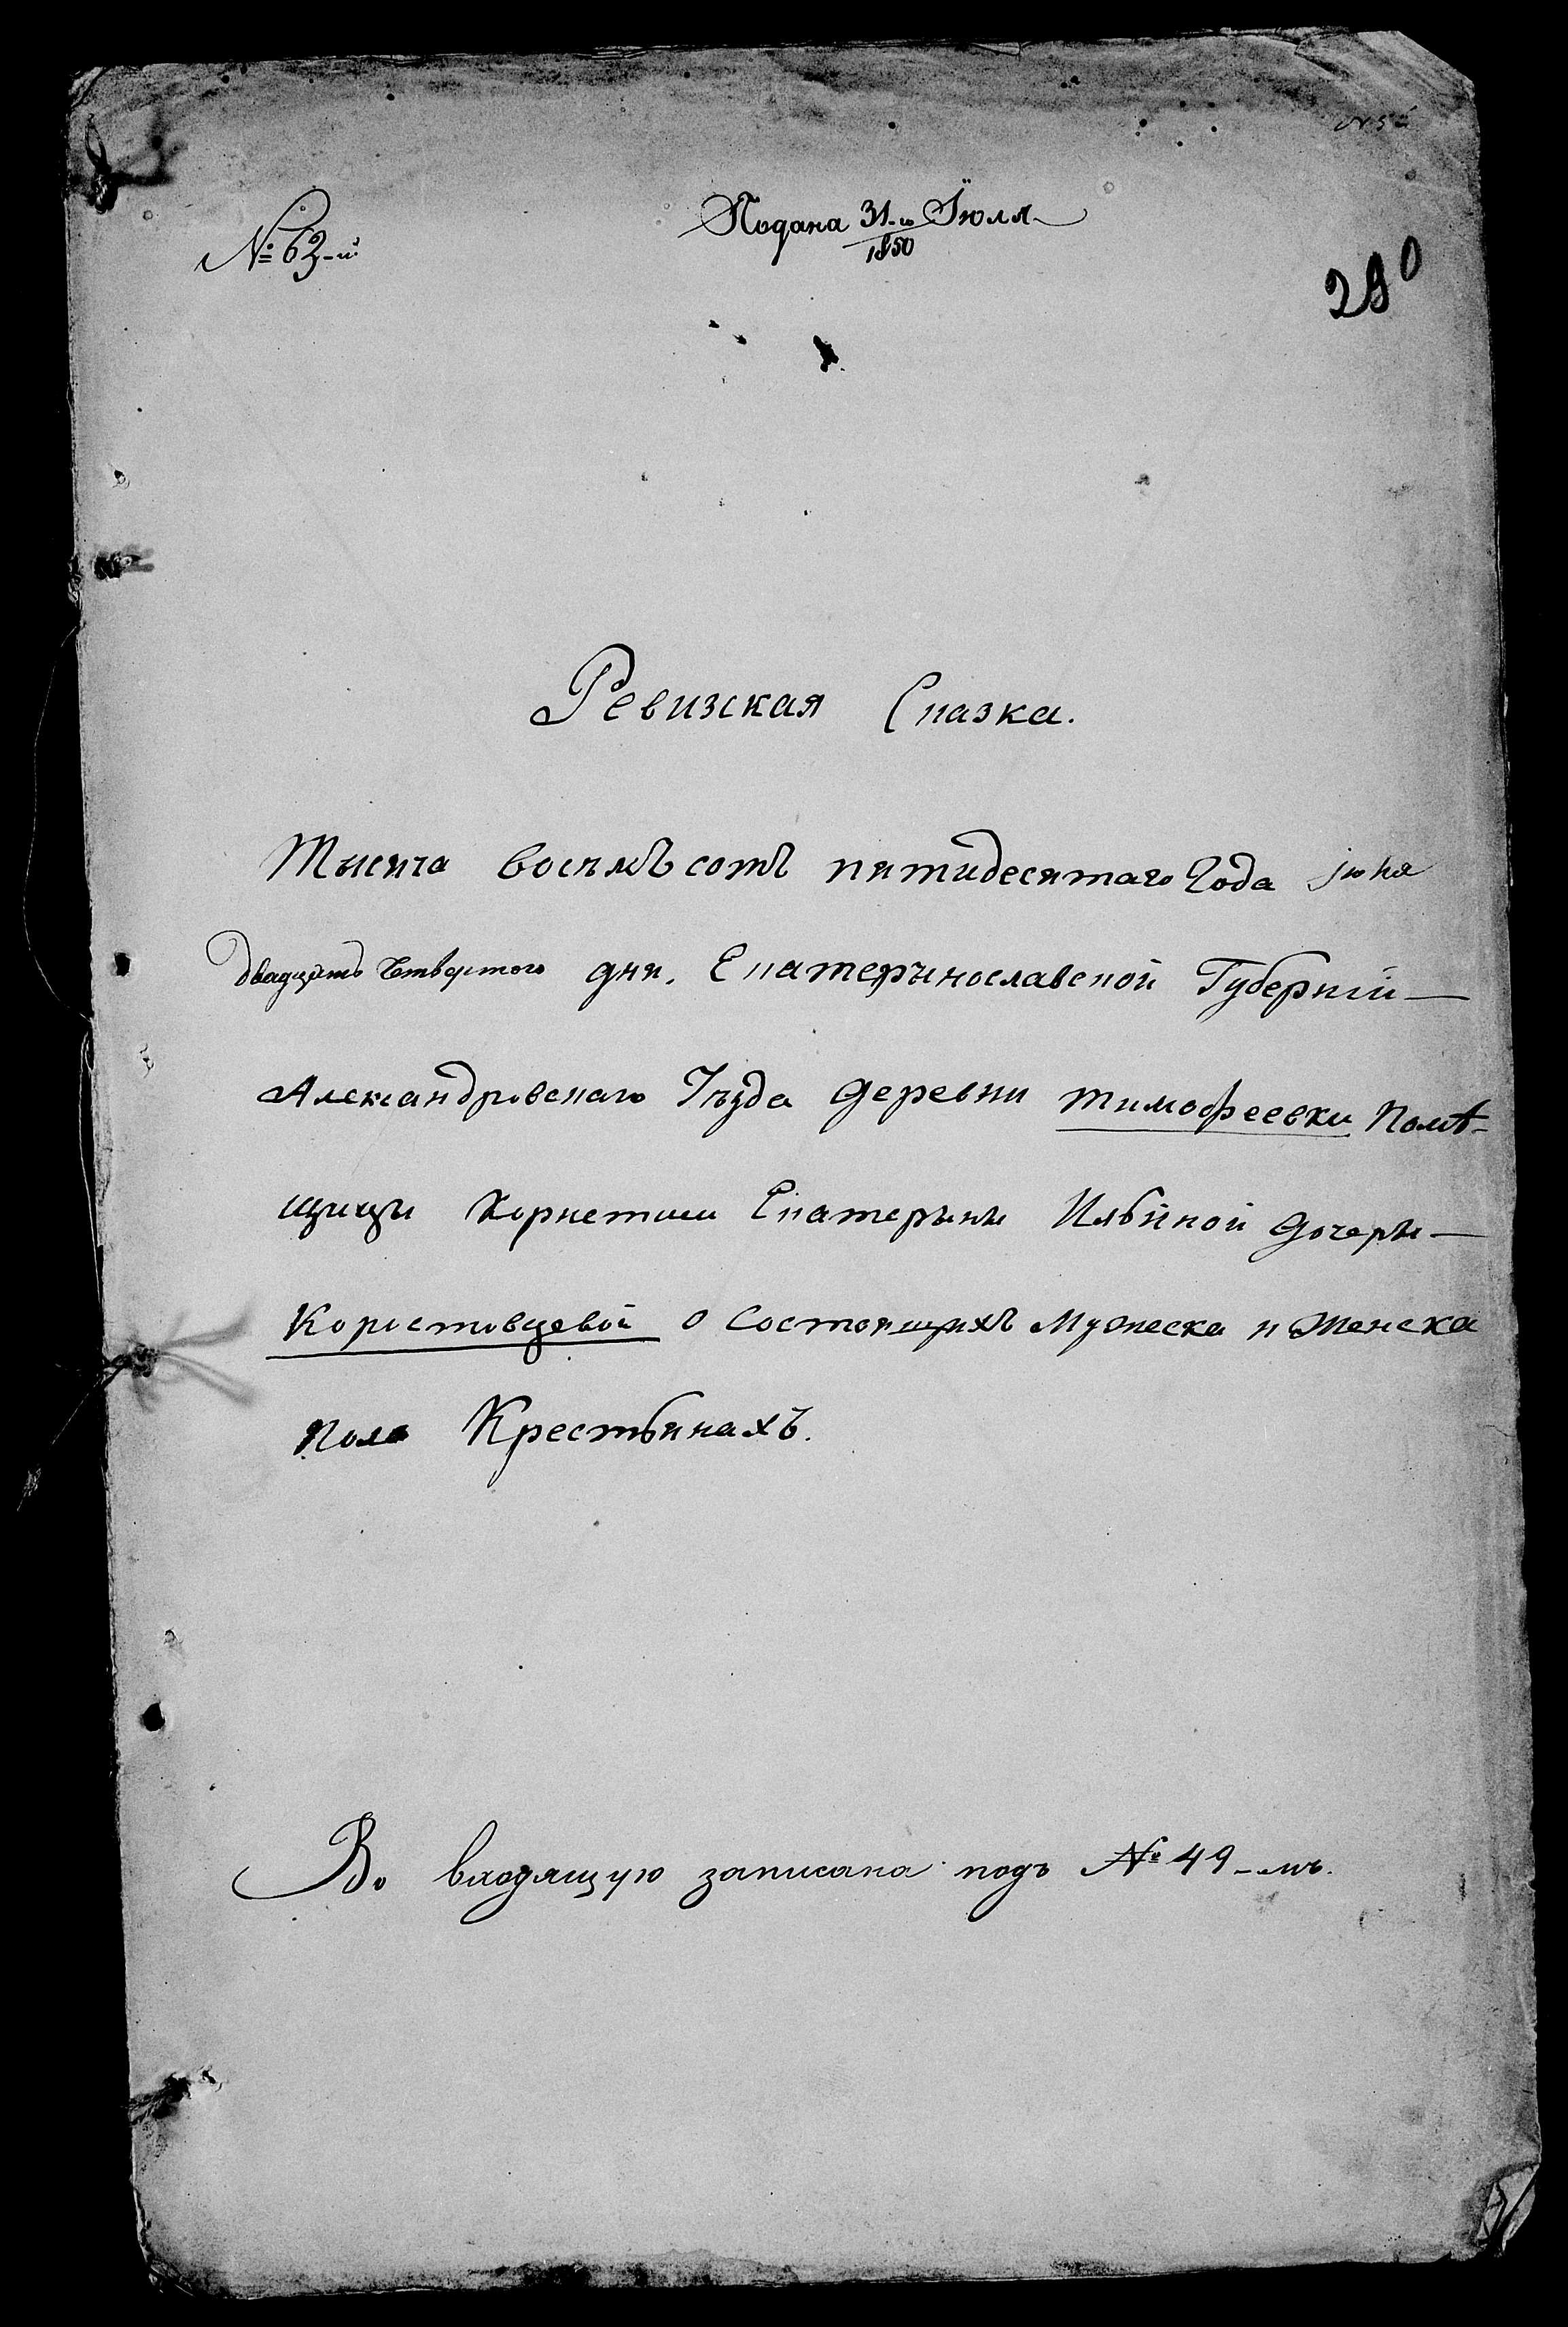 № 63-й
Подана 31-го Іюля
1850
280
Ревизская Сказка.
Тысяча восъмъ сотъ пятидесятаго Года июня
двадцять Четвертого дня. Екатерынославской Губерніи
Александровскаго Уѣзда деревни Тимофеевки Помѣ-
щицы Корнетши Екатерыны Ильиной дочеры
Коростовцевой о Состоящихъ Мужеска и Женска
пола Крестьянахъ.
Во входящую записана подъ № 49-мъ.